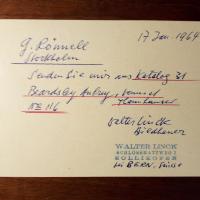 17 Jan. 1964
G. Rönnell
Stockholm
Senden Sie mir aus Katalog 31
Beardsley Aubrey, Venus und
Nº 116 Tannhäuser
Walter Linck
Bildhauer
WALTER LINCK
SCHLOSSMATTWEG 2
ZOLLIKOFEN
bei BERN, Suisse